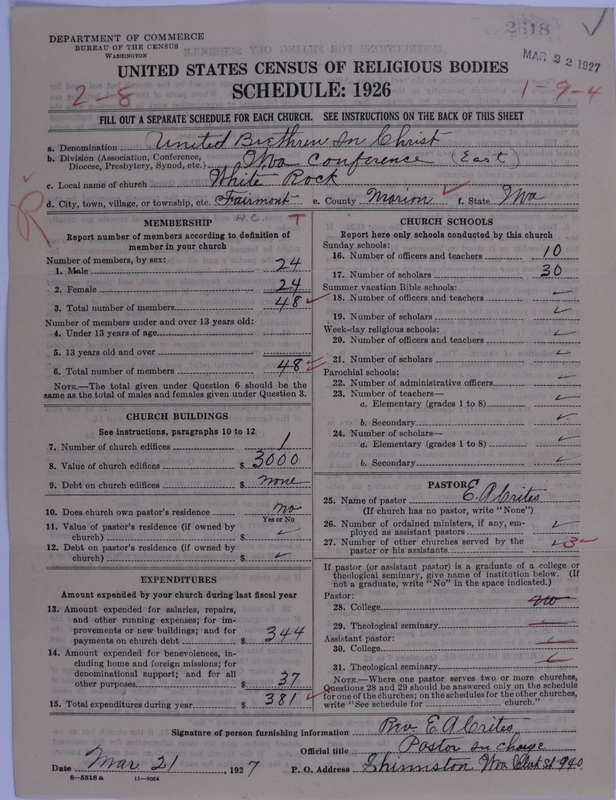 2518
MAR 22 1927
DEPARTMENT OF COMMERCE
BUREAU OF THE CENSUS
WASHINGTON
UNITED STATES CENSUS OF RELIGIOUS BODIES
2-8 SCHEDULE: 1926 1-9-4
FILL OUT A SEPARATE SCHEDULE FOR EACH CHURCH. SEE INSTRUCTIONS ON THE BACK OF THIS SHEET
a. Denomination United Brethren In Christ
b. Division (Association, Conference, Diocese, Presbytery, Synod, etc.) Wva Conference (East)
c. Local name of church White Rock
d. City, town, village, or township, etc. Fairmont e. County Marion f. State Wva
H.C. T
MEMBERSHIP
Report number of members according to definition of member in your church
Number of members, by sex:
1. Male 24
2. Female 24
3. Total number of members 48
Number of members under and over 13 years old:
4. Under 13 years of age
5. 13 years old and over
6. Total number of members 48
NOTE.—The total given under Question 6 should be the same as the total of males and females given under Question 3.
CHURCH BUILDINGS
See instructions, paragraphs 10 to 12
7. Number of church edifices 1
8. Value of church edifices $ 3000
9. Debt on church edifices $ none
10. Does church own pastor's residence no
Yes or No
11. Value of pastor's residence (if owned by church) $
12. Debt on pastor's residence (if owned by church) $
EXPENDITURES
Amount expended by your church during last fiscal year
13. Amount expended for salaries, repairs, and other running expenses; for improvements or new buildings; and for payments on church debt $ 344
14. Amount expended for benevolences, including home and foreign missions; for denominational support; and for all other purposes $ 37
15. Total expenditures during year $ 381
CHURCH SCHOOLS
Report here only schools conducted by this church
Sunday schools:
16. Number of officers and teachers 10
17. Number of scholars 30
Summer vacation Bible schools:
18. Number of officers and teachers
19. Number of scholars
Week-day religious schools:
20. Number of officers and teachers
21. Number of scholars
Parochial schools:
22. Number of administrative officers
23. Number of teachers—
a. Elementary (grades 1 to 8)
b. Secondary
24. Number of scholars—
a. Elementary (grades 1 to 8)
b. Secondary
PASTOR
25. Name of pastor E. A Crites
(If church has no pastor, write "None")
26. Number of ordained ministers, if any, employed as assistant pastors
27. Number of other churches served by the pastor or his assistants 3
If pastor (or assistant pastor) is a graduate of a college or theological seminary, give name of institution below. (If not a graduate, write "No" in the space indicated.)
Pastor:
28. College no
29. Theological seminary
Assistant pastor:
30. College
31. Theological seminary
NOTE.—Where one pastor serves two or more churches, Questions 28 and 29 should be answered only on the schedule for one of the churches; on the schedules for the other churches, write "See schedule for church."
Signature of person furnishing information E A Crites
Official title Pastor in charge
Date Mar 21, 1927 P. O. Address Shinnston Wva Clark St 940
8-5318a 11-9054